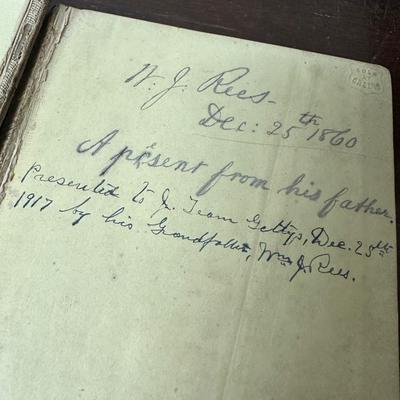 W. J. Rees-
Dec: 25th 1860
A present from his father.
Presented to J. Team Gettys, Dec. 25th
1917 by his Grandfather, Wm J. Rees.